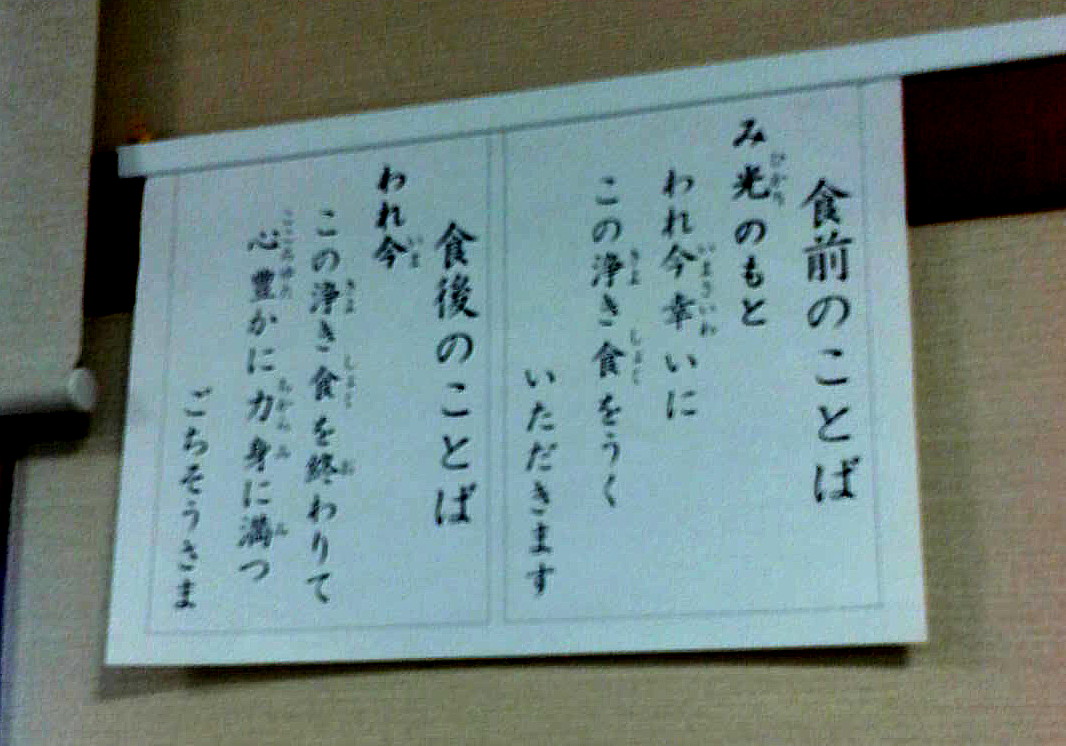 食前のことば
み光のもと
われ今幸いに
この浄き食をうく
いただきます
食後のことば
われ今
この浄き食を終わりて
心豊かに力身に満つ
ごちそうさま